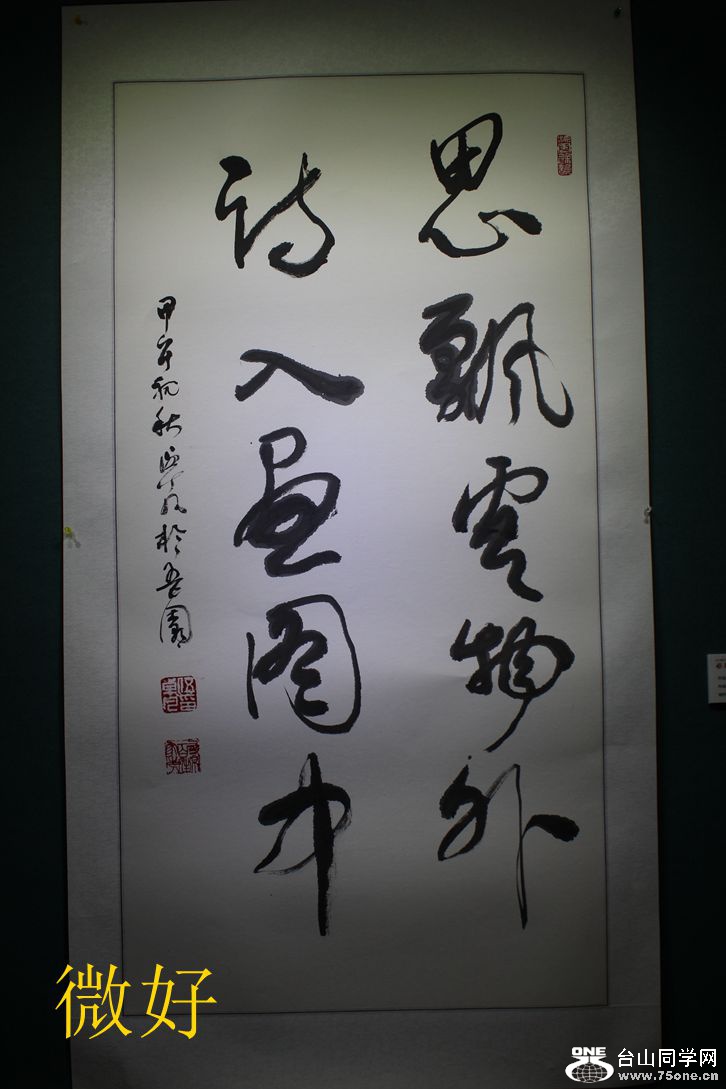 思飘云物外
诗入画图中
甲午初秋
於吾园
微好
ONE
台山同学网
www.75one.cn